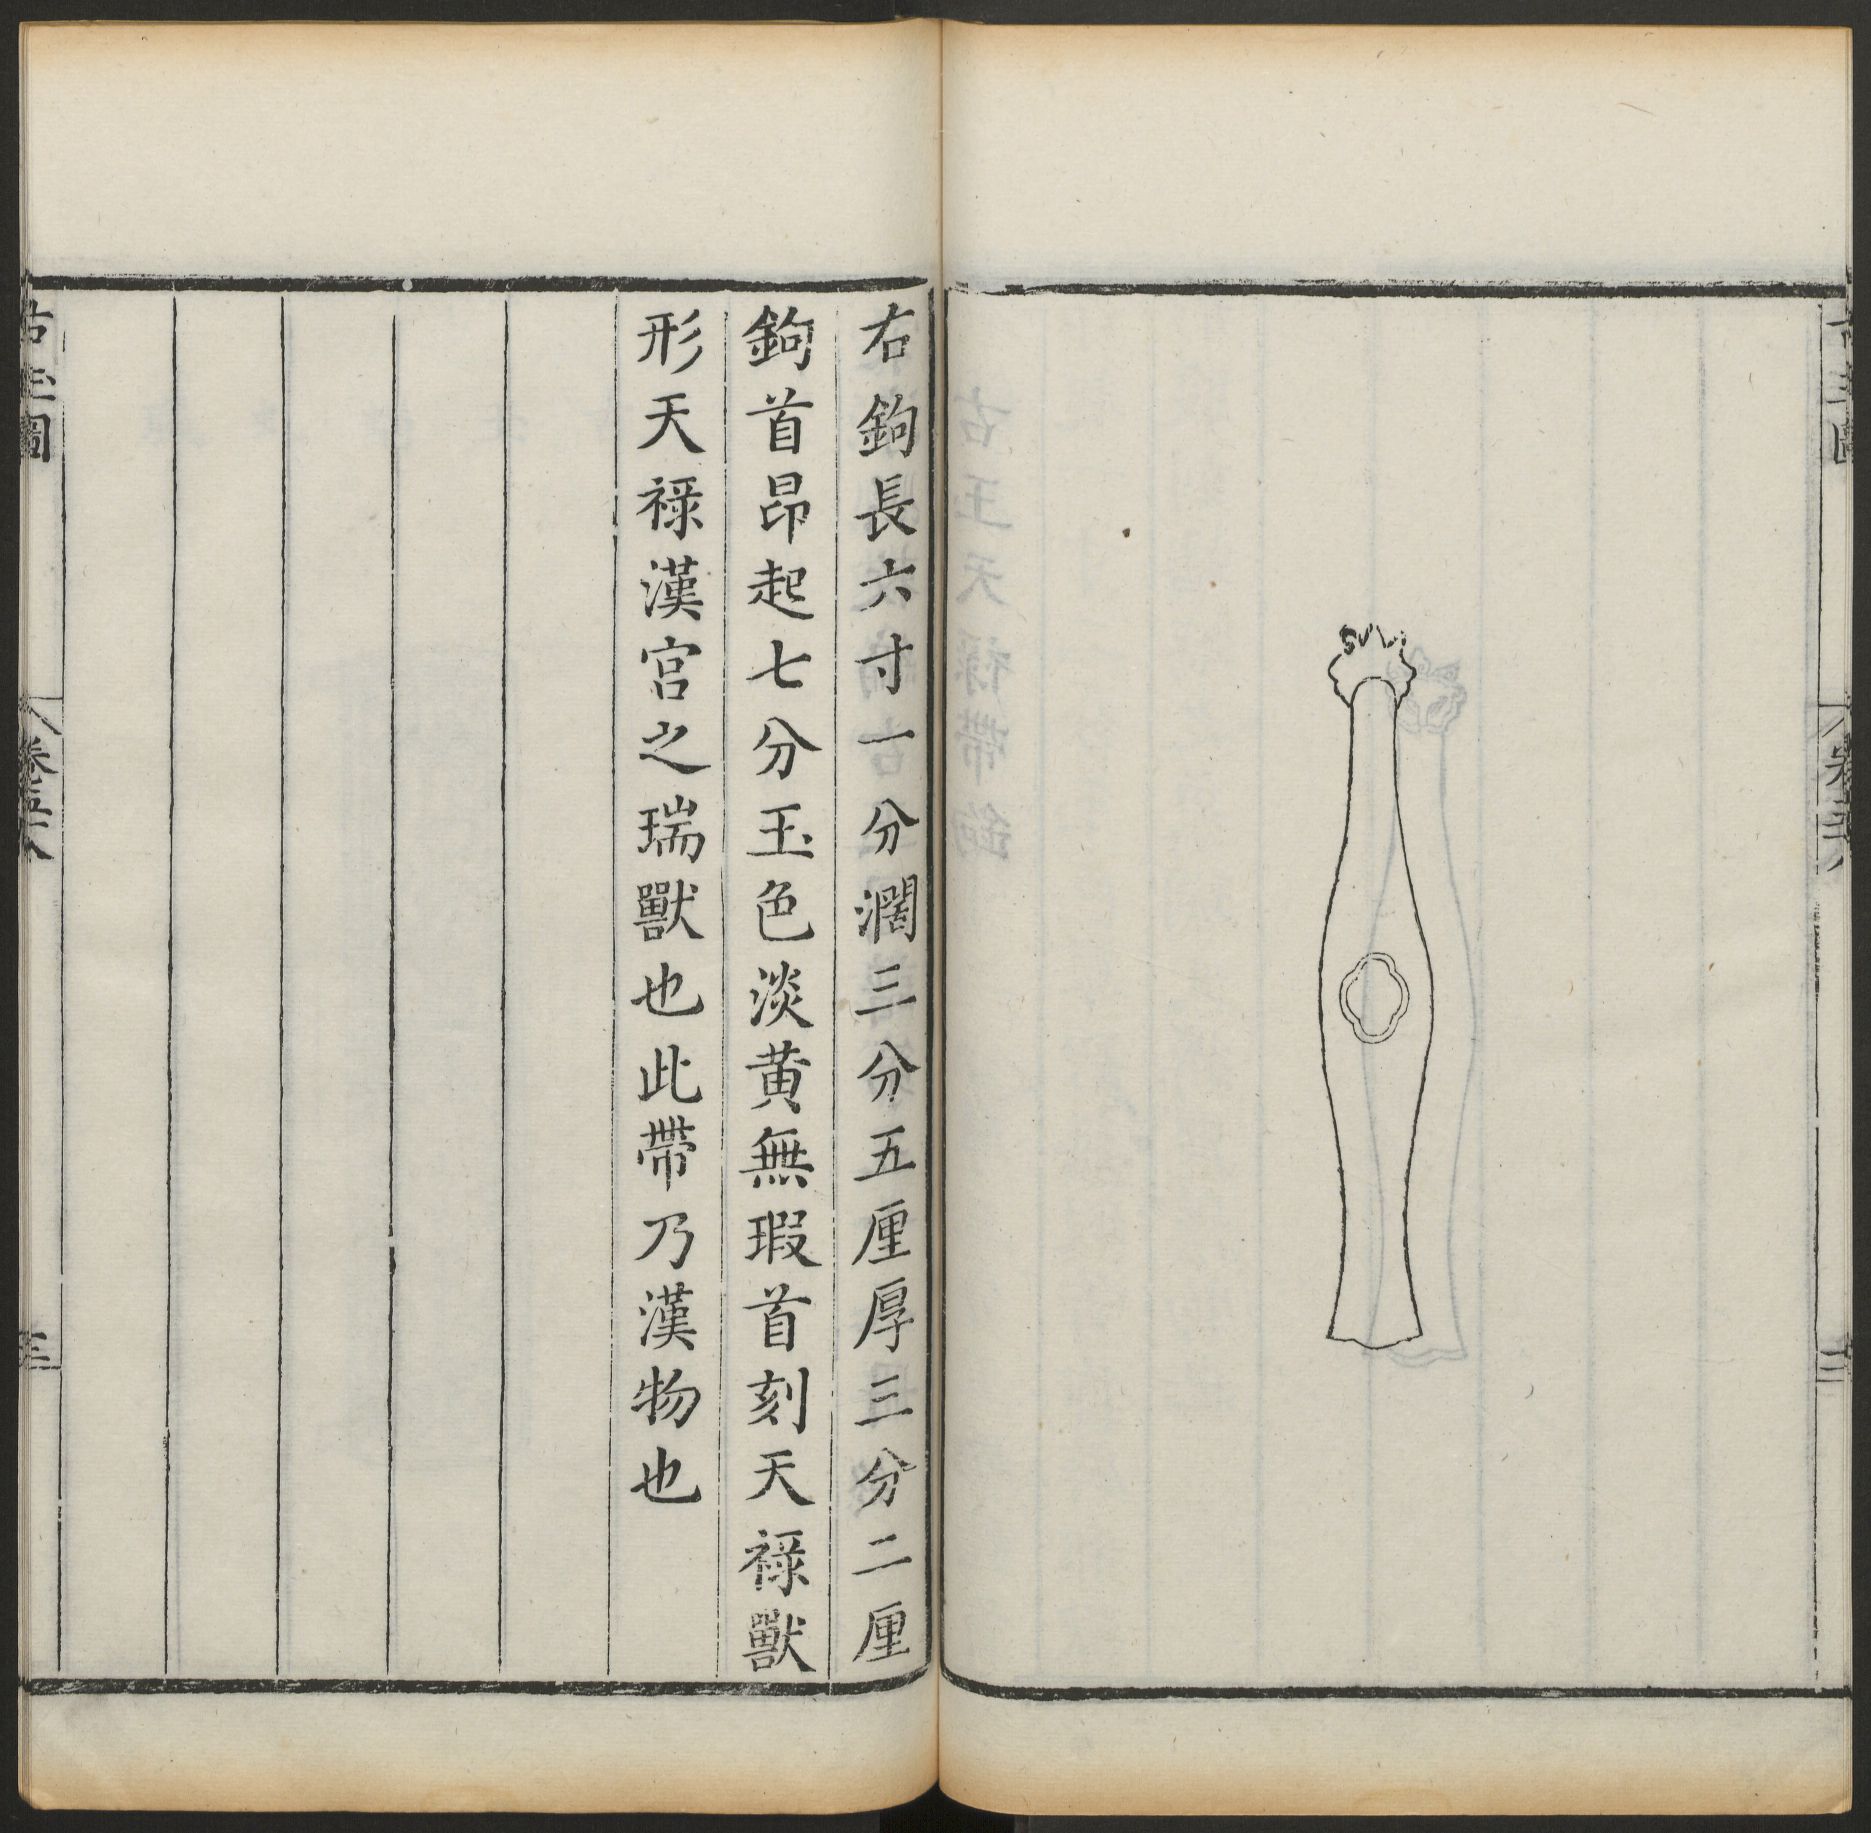 右鉤長六寸一分濶三分五厘厚三分二厘
鉤首昂起七分玉色淡黄無瑕首刻天禄獸
形天禄漢宫之瑞獸也此帶乃漢物也
古玉圖
三